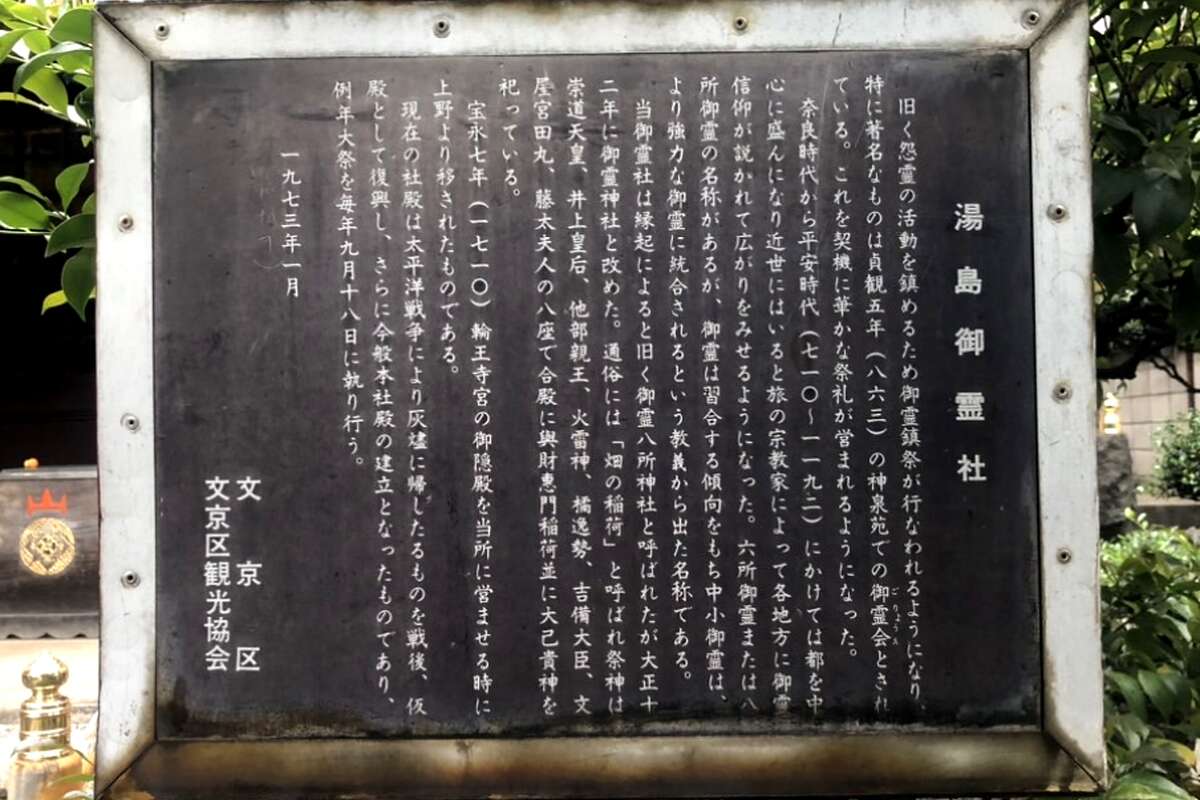 湯島御霊社
旧く怨霊の活動を鎮めるため御霊鎮祭が行なわれるようになり、
特に著名なものは貞観五年(八六三)の神泉苑での御霊会とされ
ごりょうえ
ている。これを契機に華かな祭礼が営まれるようになった。
奈良時代から平安時代(七一〇〜一一九二)にかけては都を中
心に盛んになり近世にはいると旅の宗教家によって各地方に御霊
信仰が説かれて広がりをみせるようになった。六所御霊または八
所御霊の名称があるが、御霊は習合する傾向をもち中小御霊は、
より強力な御霊に統合されるという教義から出た名称である。
当御霊社は縁起によると旧く御霊八所神社と呼ばれたが大正十
二年に御霊神社と改めた。通俗には「畑の稲荷」と呼ばれ祭神は
崇道天皇、井上皇后、他部親王、火雷神、橘逸勢、吉備大臣、文
屋宮田丸、藤太夫人の八座で合殿に與財恵門稲荷並に大己貴神を
祀っている。
宝永七年(一七一〇)輪王寺宮の御隠殿を当所に営ませる時に
上野より移されたものである。
現在の社殿は太平洋戦争により灰燼に帰したるものを戦後、仮
殿として復興し、さらに今般本社殿の建立となったものであり、
例年大祭を毎年九月十八日に執り行う。
一九七三年一月
文京区
文京区観光協会